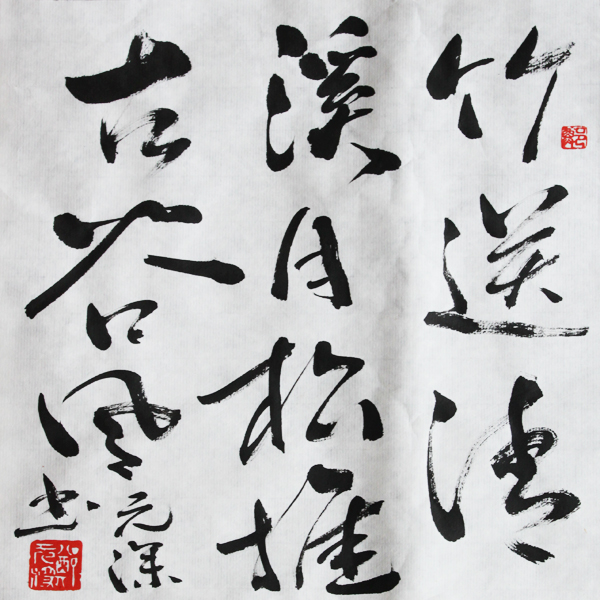 竹送清
溪月松摇
古谷风
元深
书